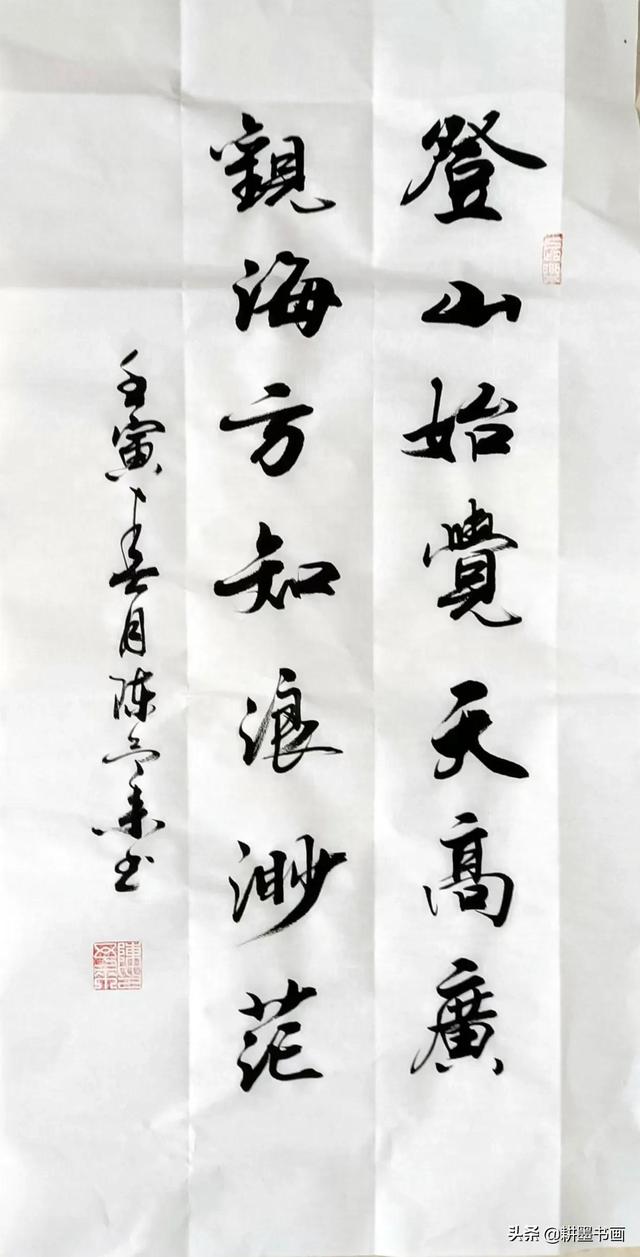 登山始覺天高廣
觀海方知浪渺茫
壬寅年春月陈书
头条 @耕墨书画